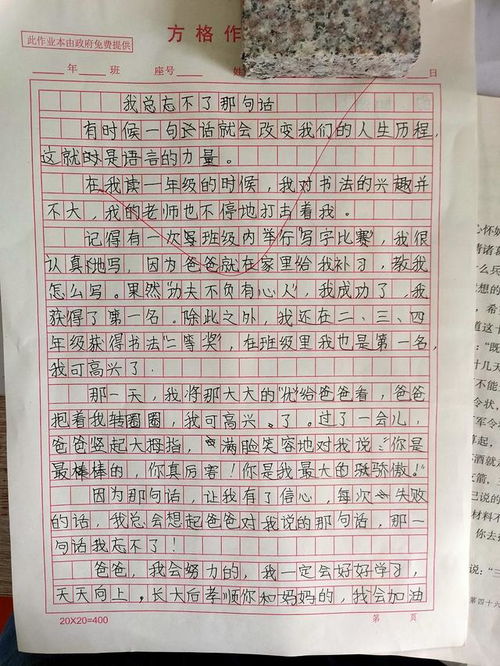 此作业本由政府免费提供
方格作
年 班 座号 日
我总忘不了那句话
有时候一句话就会改变我们的人生历程,
这就时是语言的力量。
在我读一年级的时候,我对书法的兴趣并
不大,我的老师也不停地打击着我。
记得有一次班级内举行"写字比赛",我很
认真地写,因为爸爸就在家里给我补习,教我
怎么写。果然"功夫不负有心人",我成功了,我
获得了第一名。除此之外,我还在二、三、四
年级获得书法"二等奖",在班级里我也是第一名,
我可高兴了.
那一天,我将那大大的"优"给爸爸看,爸爸
抱着我转圈圈,我可高兴。了。过了一会儿,
爸爸竖起大拇指,满脸笑容地对我说:"你是
最棒棒的,你真厉害!你是我最大的骄傲!"
因为那句话,让我有了信心,每次失败
的话,我总会想起爸爸对我说的那句话,那一
句话我忘不了!
爸爸,我会努力的,我一定会好好学习,
天天向上,长大后孝顺你和妈妈的,我会加油
20X20=400
第 页